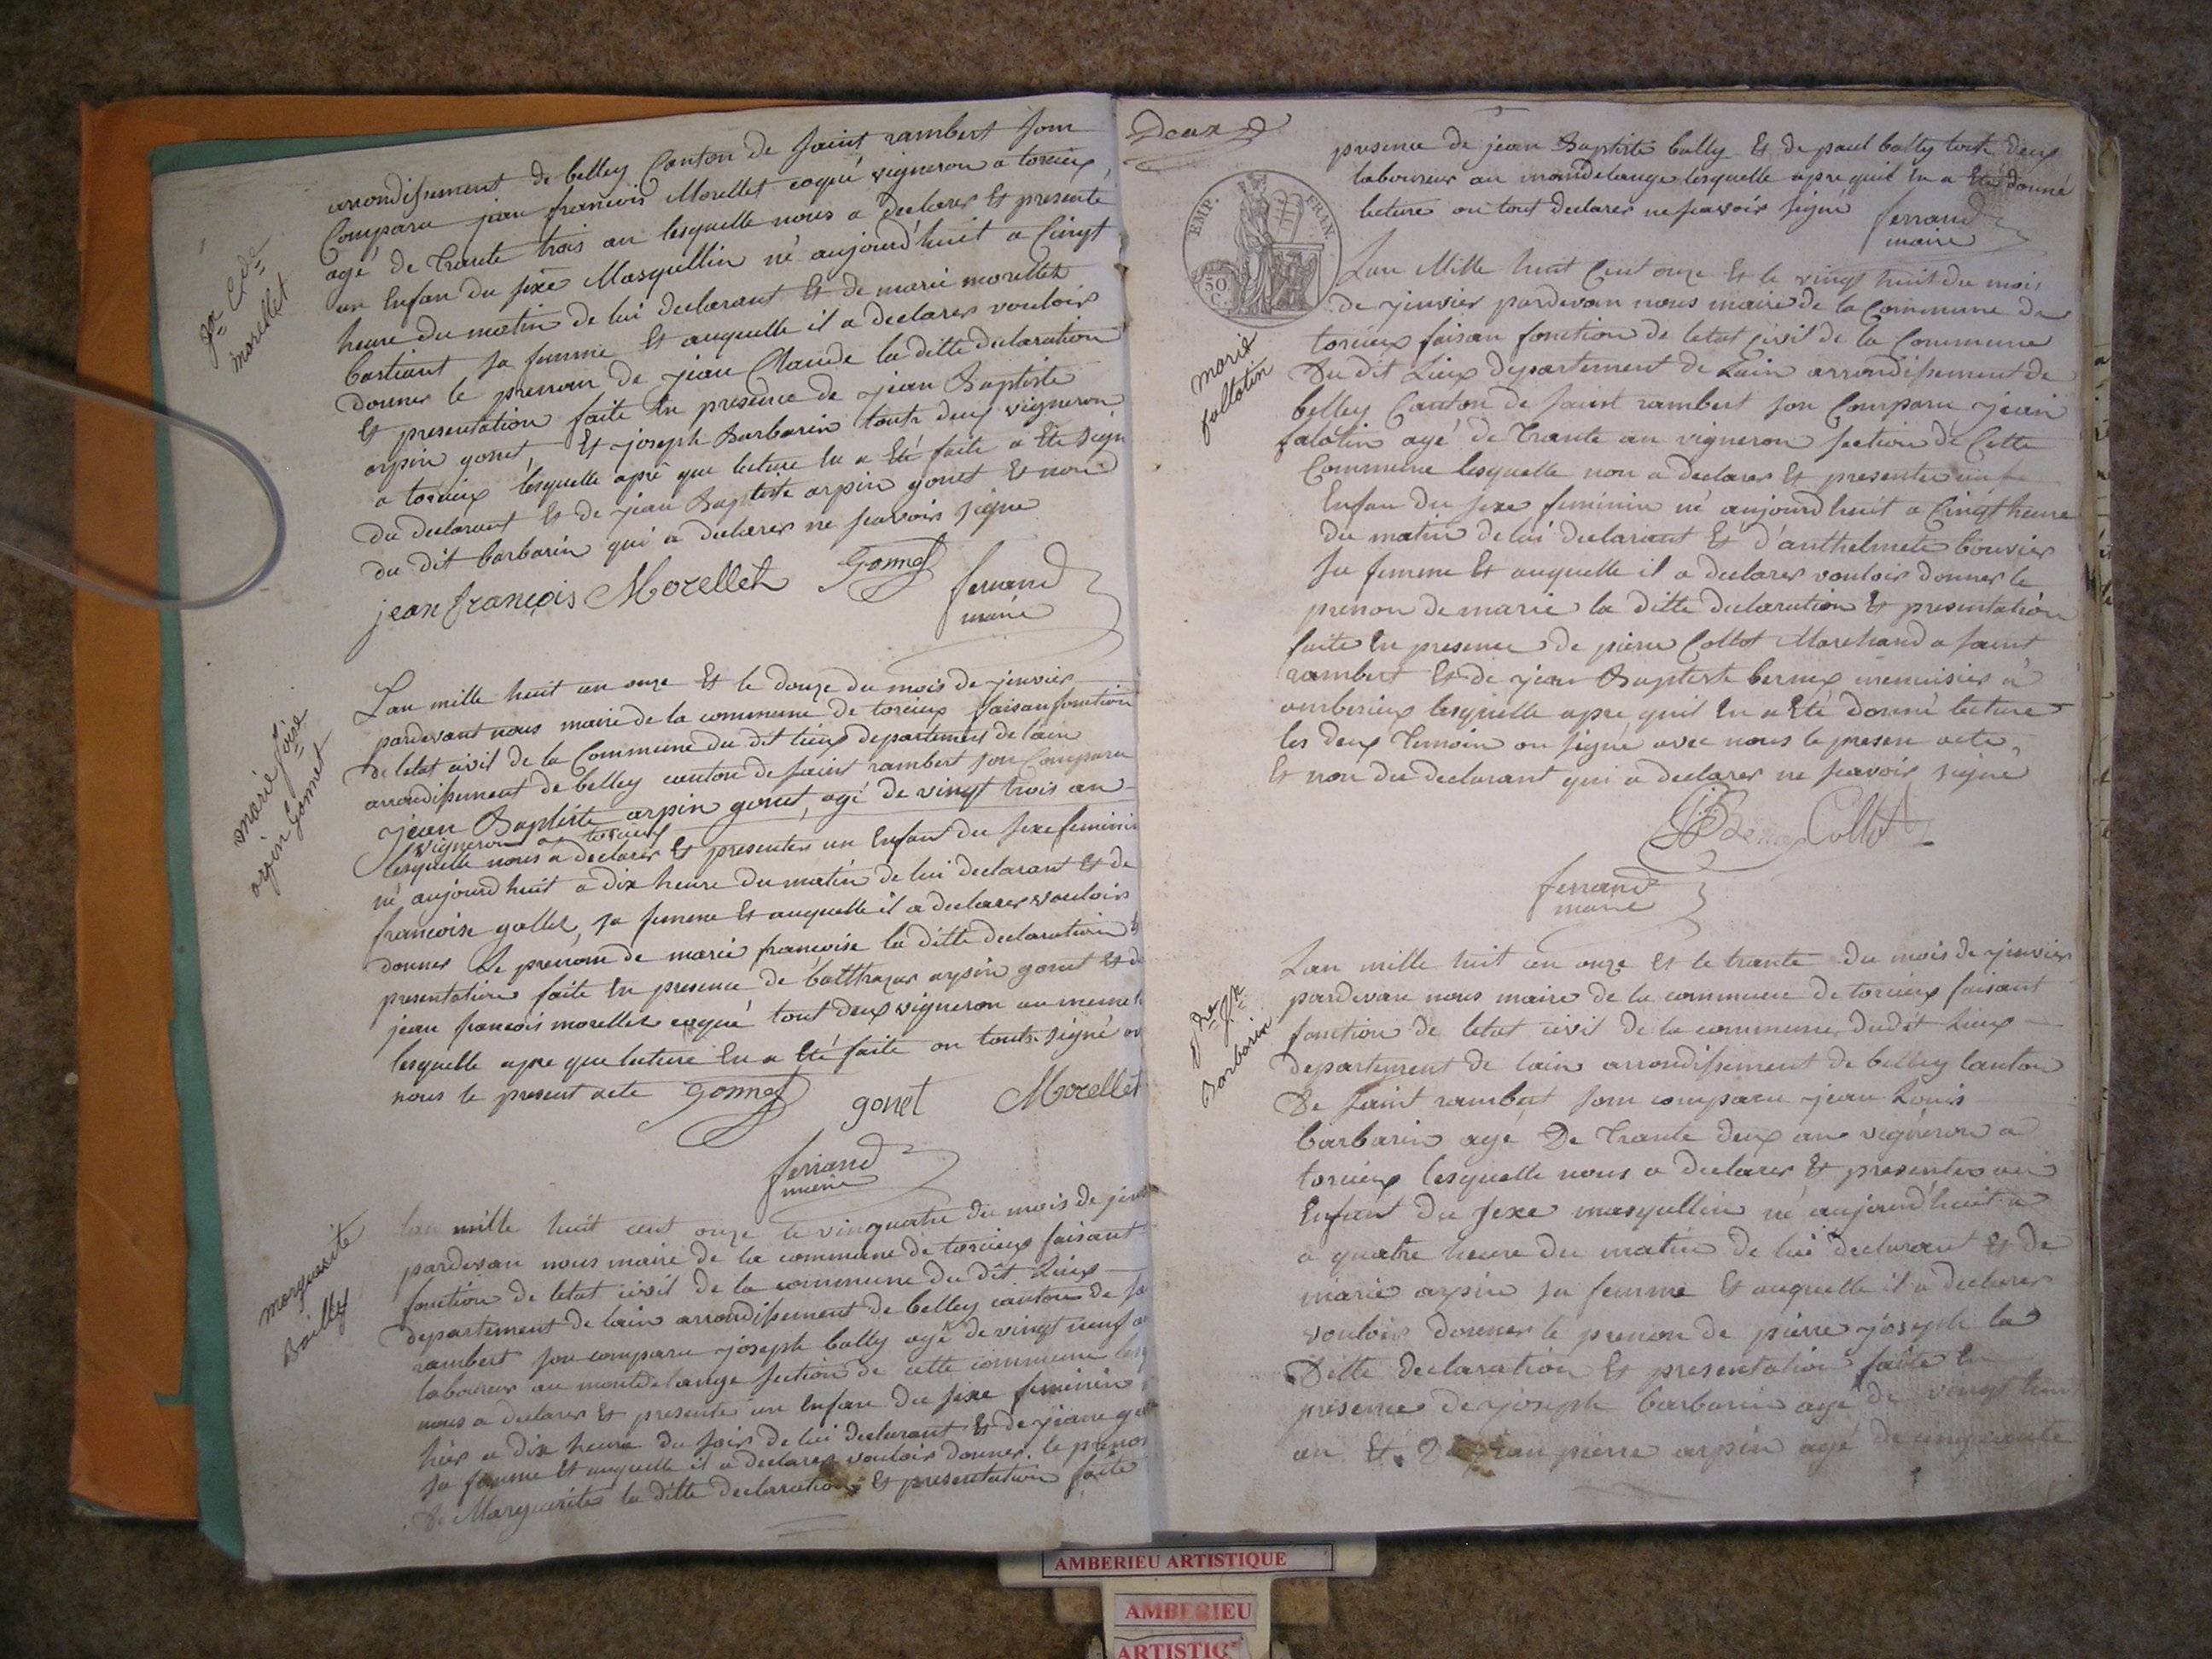 arrondissement de belley Canton de saint rambert sont
Comparu jean francois Morellet coqué vigneron a torcieux
agé de trante trois an lesquelle nous a declarer et presenté
un Enfan du sexe Masquellin né aujourd'huit a Cinqt
heure du matin de lui declarant Et de marie morellet
bastiant sa femme Et auquelle il a declarer vouloir
donner le prenom de jean Claude la ditte declaration
Et presentation faite En presence de jean Baptiste
arpin gonet, Et joseph Barbarin touts deux vigneron
a torcieux lesquelle apré que lecture En a Eté faite a Eté sign
du declarant Et de jean Baptiste arpin gonet Et non
du dit barbarin qui a declarer ne scavoir signe
jean françois Morellet Gonnet ferrand
maire
jn Cde
morellet
Lan mille huit cen onze Et le douze du mois de jenvier
pardevant nous maire de la commune de torcieux faisan fonction
de letat civil de la Commune du dit lieux departement de lain
arrondissement de belley canton de saint rambert son Comparu
jean Baptiste arpin gonet, agé de vingt trois an
vigneron a torcieux
lesquelle nous a declarer Et presenter un Enfant du sexe feminin
né aujourdhuit a dix heure du matin de lui declarant Et de
francoise gallet, sa femme Et auquelle il a declarer vouloir
donner le prenom de marie françoise la ditte declaration Et
presentation faite En presence de balthazar arpin gonet Et de
jean francois morellet coqué tout deux vigneron au meme
lesquelle apre que lecture En a Eté faite on touts signé av
nous le present acte Gonnet gonet Morellet
ferrand
maire
marie foise
arpin Gonnet
Lan mille huit cent onze le vinquatre du mois de jenv
pardevan nous maire de la commune de torcieux faisant
fonction de letat civil de la commune du dit Lieux
departement de lain arrondissement de belley canton de sa
rambert son comparu joseph bally agé de vingt neuf an
laboureur au montdelange section de cette commune lesq
nous a declarer Et presenté un Enfan du sexe feminin
hier a dix heure du soir de lui declarant Et de jeane
sa femme Et auquelle il a declarer vouloir donner le prenom
de Marguerite la ditte declaration Et presentation faite
marguerite
Bailly
Deux
presence de jean Baptiste bally Et de paul bally touts deux
laboureur au mondelange lesquelle apre quil En a Eté donné
lecture on tout declarer ne scavoir signé ferrand
maire
EMP. FRAN
50
C.
Lan Mille huit Cent onze Et le vingt huit du mois
de jenvier pardevan nous maire de la Commune de
torcieux faisan fonction de letat civil de la Commune
Du dit Lieux departement de Lain arrondissement de
belley Canton de saint rambert son Comparu jean
falatin agé de trante an vigneron section de Cette
Commune lesquelle nou a declarer Et presenter un
Enfan du sexe feminin né aujourdhuit a Cinqt heure
du matin de lui declarant Et d'anthelmete bouvier
sa femme Et auquelle il a declarer vouloir donner le
prenon de marie la ditte declaration Et presentation
faite En presence de piere Collot Marchand a saint
rambert Et de jean Baptiste bernex menuisier a
amberieux lesquelle apre quil En a Eté donné lecture
les deux temoin on signé avec nous le presen acte,
Et non du declarant qui a declarer ne scavoir signé
Collot
ferrand
maire
marie
fallatin
Lan mille huit cen onze Et le trante du mois de jenvier
pardevan nous maire de la commune de torcieux faisant
fonction de letat civil de la commune dudit Lieux
departement de lain arrondissement de belley canton
De saint rambert son comparu jean Louis
barbarin agé De trante deux ans vigneron a
torcieux lesquelle nous a declarer Et presenter un
Enfant du sexe masquellin né aujourd'huit a
a quatre heure du matin de lui declarant Et de
marie arpin sa femme Et auquelle il a declarer
vouloir donner le prenon de pierre joseph la
Ditte declaration Et presentation faite En
presence de joseph barbarin agé de vingt
an Et De jean pierre arpin agé de cinquante
Barbarin
AMBERIEU ARTISTIQUE
AMBERIEU
ARTISTIQ